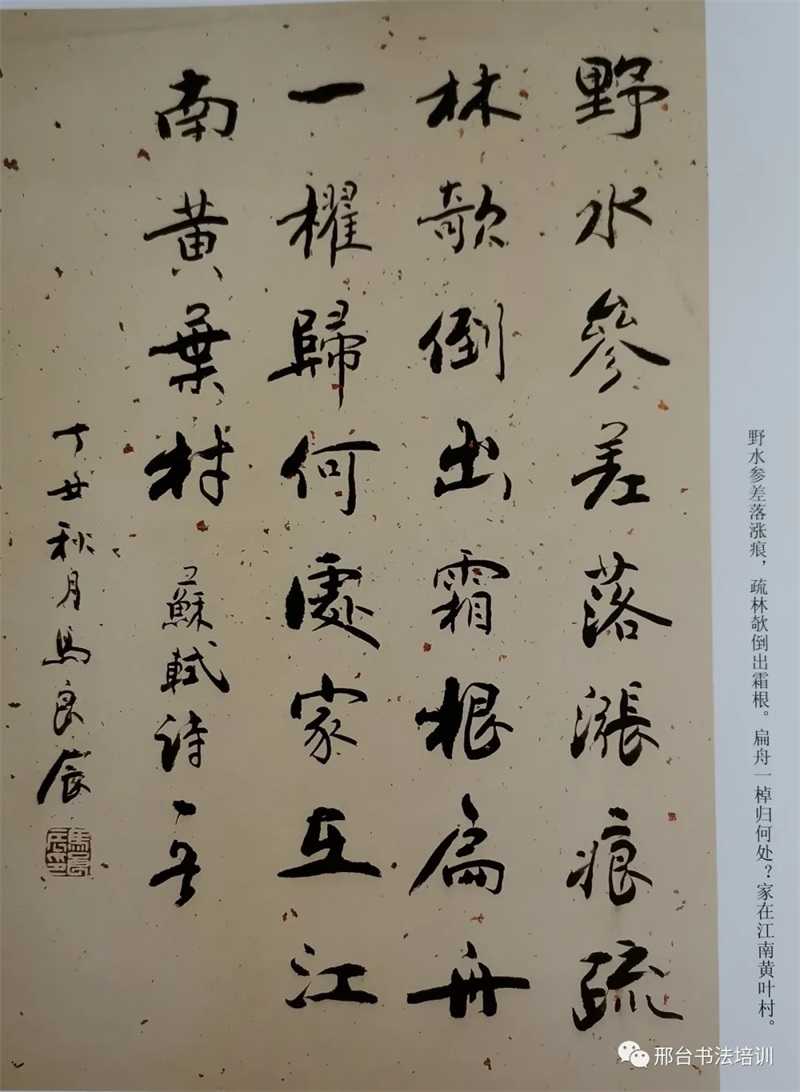 野水參差落漲痕疏
林欹倒出霜根扁舟
一櫂歸何處家在江
南黃葉村 蘇軾詩一首
丁丑秋月馬良辰
野水参差落涨痕，疏林欹倒出霜根。扁舟一棹归何处？家在江南黄叶村。
邢台书法培训